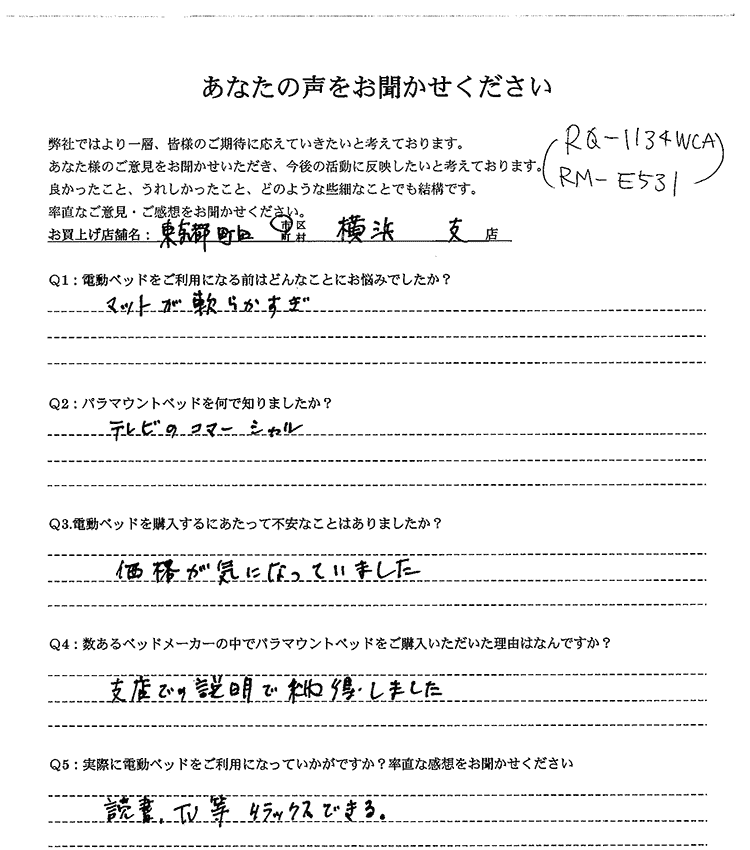 あなたの声をお聞かせください
弊社ではより一層、皆様のご期待に応えていきたいと考えております。
あなた様のご意見をお聞かせいただき、今後の活動に反映したいと考えております。
良かったこと、うれしかったこと、どのような些細なことでも結構です。
率直なご意見・ご感想をお聞かせください。
(RQ-1134WCA)
(RM-E531)
お買上げ店舗名：東京都町田 市区町村 横浜 支 店
Q1：電動ベッドをご利用になる前はどんなことにお悩みでしたか？
マットが軟らかすぎ
Q2：パラマウントベッドを何で知りましたか？
テレビのコマーシャル
Q3.電動ベッドを購入するにあたって不安なことはありましたか？
価格が気になっていました
Q4：数あるベッドメーカーの中でパラマウントベッドをご購入いただいた理由はなんですか？
支店での説明で納得しました
Q5：実際に電動ベッドをご利用になっていかがですか？率直な感想をお聞かせください
読書、TV等 リラックスできる。